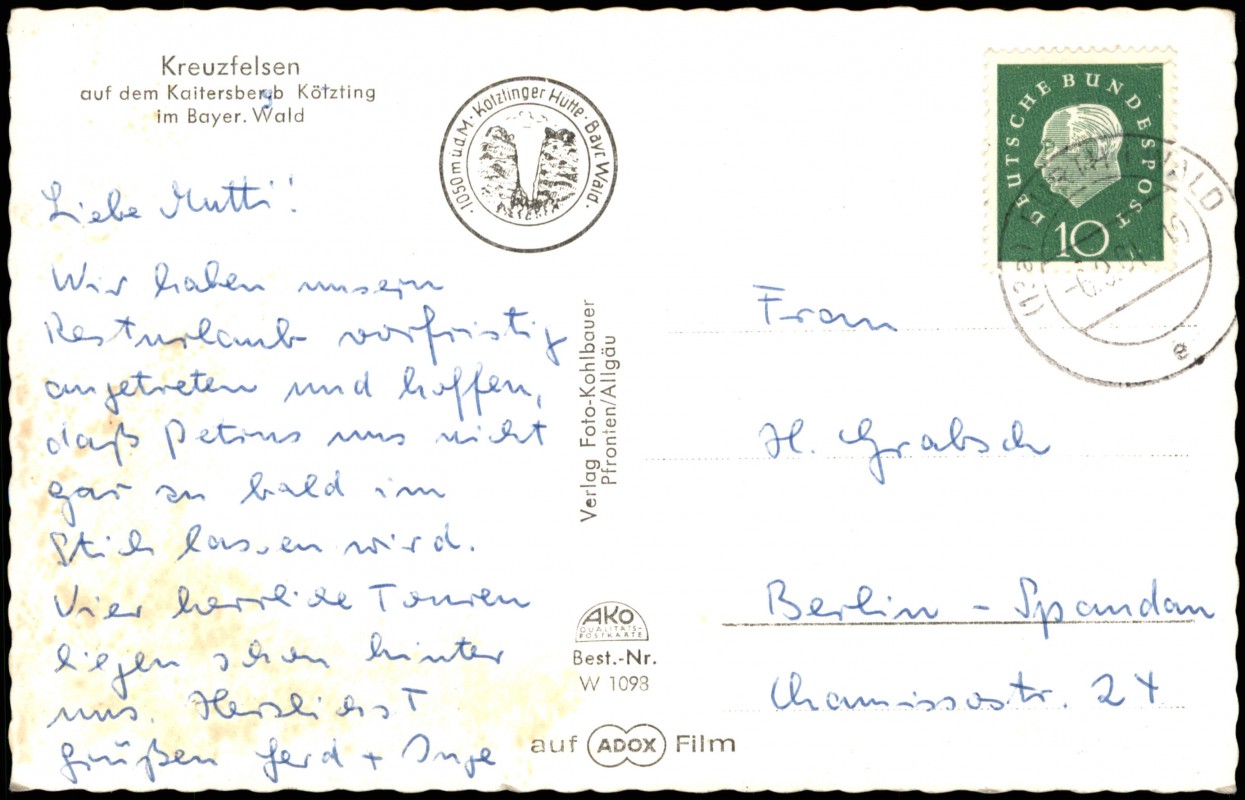 Kreuzfelsen
auf dem Kaitersberg b Kötzting
im Bayer. Wald
1050 m ü.d.M · Kötztinger Hütte · Bayr. Wald ·
DEUTSCHE BUNDESPOST
10
WALD
e
Liebe Mutti!
Wir haben unsern
Resturlaub vorfristig
angetreten und hoffen,
daß Petrus uns nicht
gar zu bald im
Stich lassen wird.
Vier herrliche Touren
liegen schon hinter
uns. Herzlichst
grüßen Gerd + Inge
Verlag Foto-Kohlbauer
Pfronten/Allgäu
AKO
QUALITÄTS-
POSTKARTE
Best.-Nr.
W 1098
auf ADOX Film
Frau
H. Grabsch
Berlin - Spandau
Chamissostr. 24